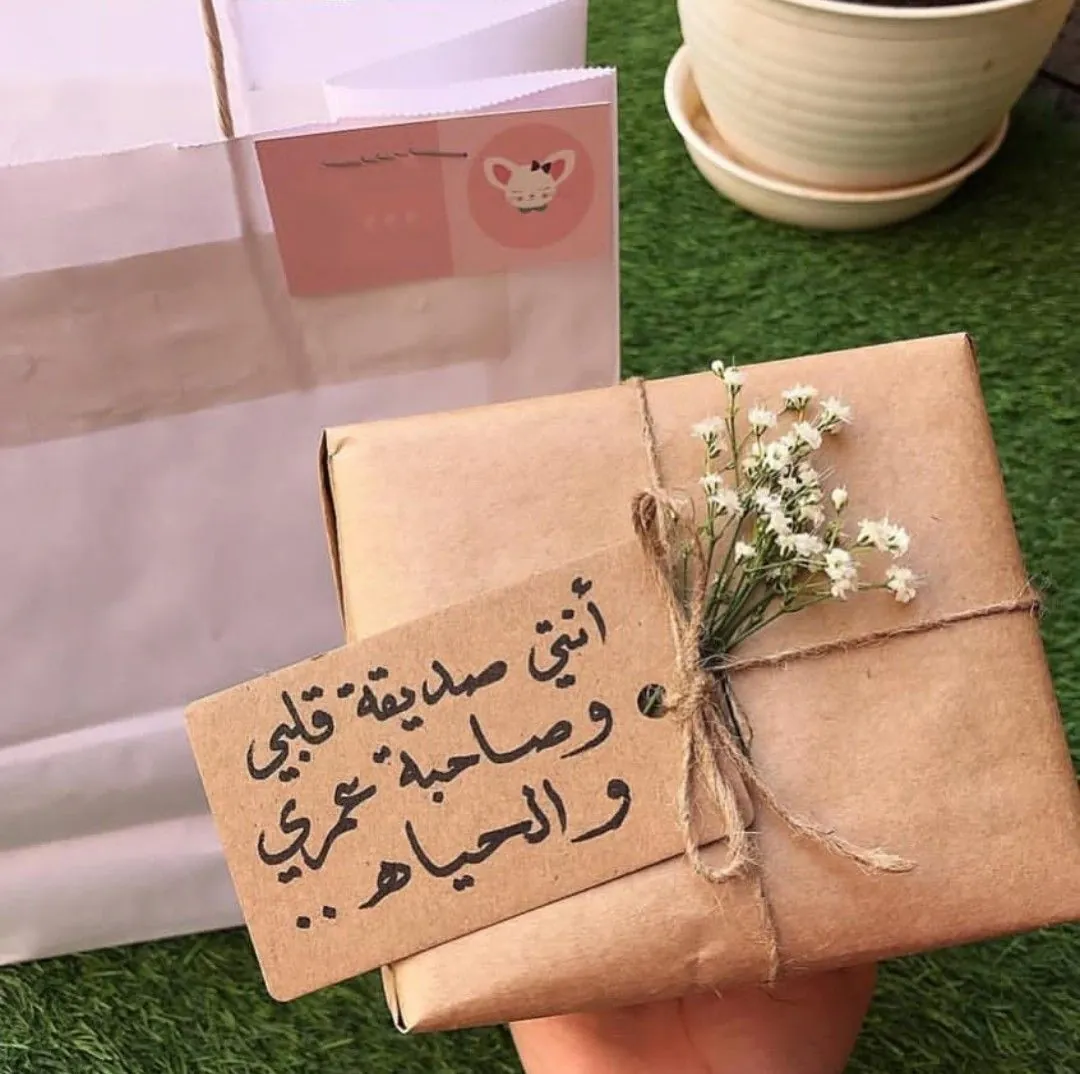 أنتي صديقة قلبي
وصاحبة عمري
والحياه..